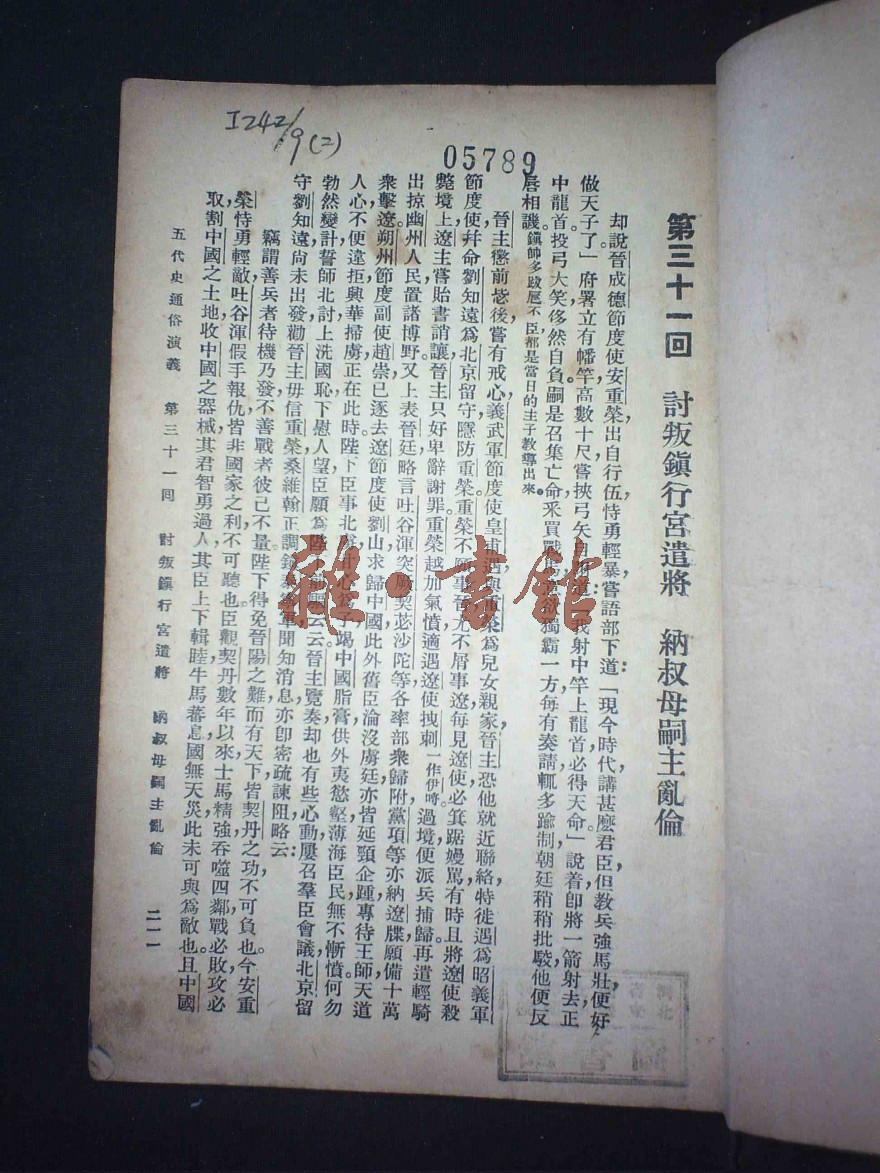 I242/9(2)
05789
第三十一回　討叛鎭行宮遣將　納叔母嗣主亂倫
却說晉成德節度使安重榮出自行伍，恃勇輕暴，嘗語部下道：「現今時代，講甚麽君臣，但教兵強馬壯，便好
做天子了」府署立有幡竿，高數十尺，嘗挾弓矢自 道：「我射中竿上龍首，必得天命」說着，卽將一箭射去，正
中龍首，投弓大笑，侈然自負。嗣是召集亡命，釆買戰馬， 欲獨霸一方，每有奏請，輒多踰制，朝廷稍稍批駁，他便反
唇相譏。鎭帥多跋扈不臣，都是當日的主子敎導出來。
晉主懲前毖後，嘗有戒心，義武軍節度使皇甫遇與重榮爲兒女親家，晉主恐他就近聯絡，特徙遇爲昭義軍
節度使，幷命劉知遠爲北京留守，隱防重榮。重榮不願事晉，尤不屑事遼，每見遼使，必箕踞嫚罵，有時且將遼使殺
斃境上，遼主嘗貽書誚讓，晉主只好卑辭謝罪，重榮越加氣憤，適遇遼使拽剌一作伊喇。過境，便派兵捕歸，再遣輕騎
出掠幽州人民，置諸博野。又上表晉廷，略言吐谷渾突厥契苾沙陀等，各率部衆歸附，黨項等亦納遼牒，願備十萬
衆擊遼，朔州節度副使趙崇已逐去遼節度使劉山，求歸中國，此外舊臣淪沒虜廷，亦皆延頸企踵，專待王師，天道
人心，不便違拒，興華掃虜，正在此時，陛下臣事北虜，甘心爲子，竭中國脂膏，供外夷慾壑，薄海臣民，無不慚憤，何勿
勃然變計，誓師北討，上洗國恥，下慰人望，臣願爲陛下前驅云云，晉主覽奏，却也有些心動，屢召羣臣會議，北京留
守劉知遠尚未出發，勸晉主毋信重榮，桑維翰正調鎭泰寧軍，聞知消息，亦卽密疏諫阻，略云：
竊謂善兵者待機乃發，不善戰者彼己不量，陛下得免晉陽之難，而有天下，皆契丹之功，不可負也。今安重
榮恃勇輕敵，吐谷渾假手報仇，皆非國家之利，不可聽也。臣觀契丹數年以來，士馬精強，吞噬四鄰，戰必敗，攻必
取，割中國之土地，收中國之器械，其君智勇過人，其臣上下輯睦，牛馬蕃息，國無天災，此未可與爲敵也。且中國
五代史通俗演義　第三十一回　討叛鎭行宮遣將　納叔母嗣主亂倫　二一一
雜·書館